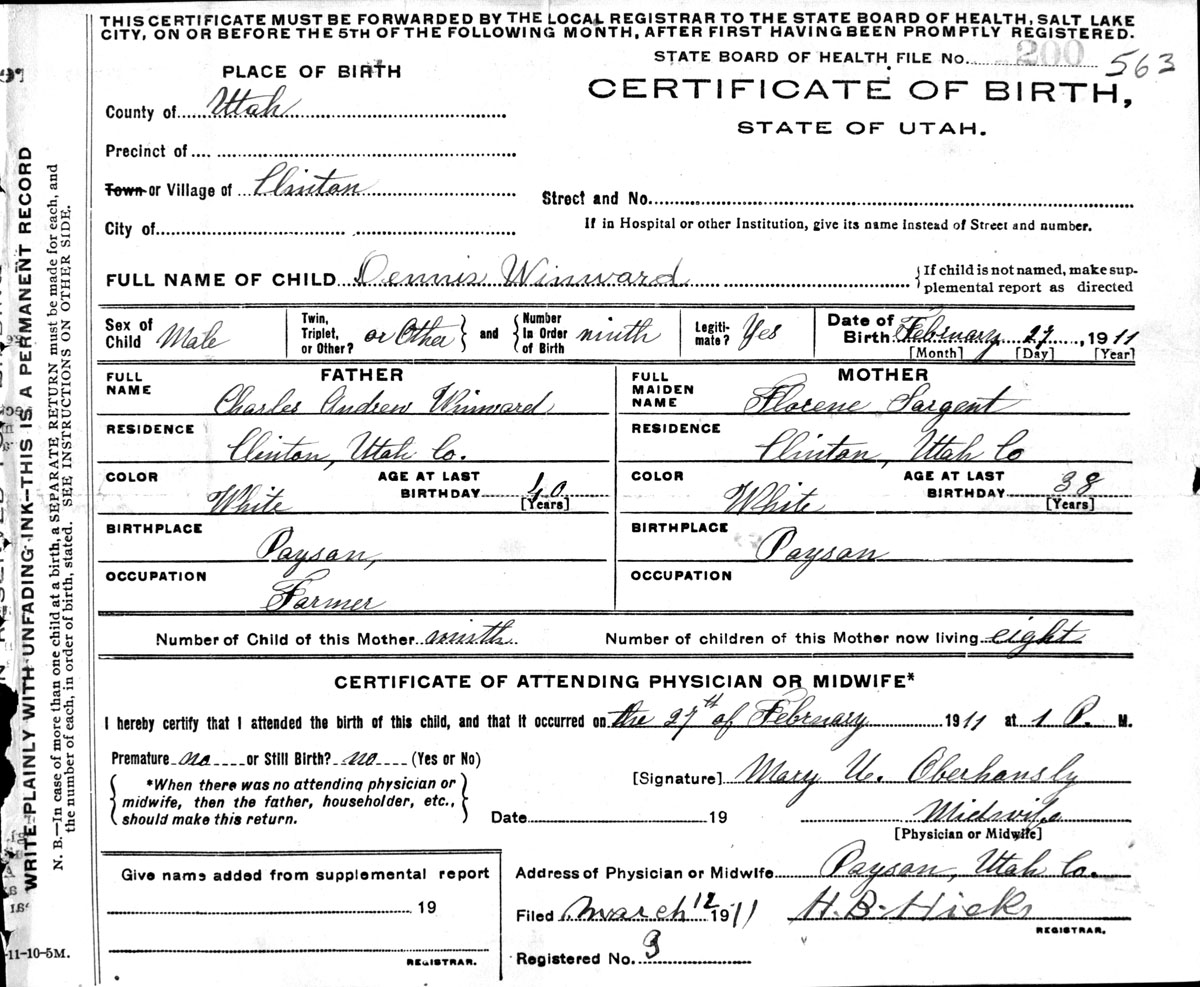 THIS CERTIFICATE MUST BE FORWARDED BY THE LOCAL REGISTRAR TO THE STATE BOARD OF HEALTH, SALT LAKE
CITY, ON OR BEFORE THE 5TH OF THE FOLLOWING MONTH, AFTER FIRST HAVING BEEN PROMPTLY REGISTERED.
STATE BOARD OF HEALTH FILE No. 200 563
PLACE OF BIRTH
CERTIFICATE OF BIRTH,
STATE OF UTAH.
County of Utah
Precinct of
Town or Village of Clinton
Street and No.
City of
If in Hospital or other Institution, give its name instead of Street and number.
FULL NAME OF CHILD Dennis Winward
If child is not named, make sup-
plemental report as directed
Sex of Child Male
Twin, Triplet, or Other? or Other and Number In Order of Birth ninth
Legiti-mate? Yes
Date of Birth February 27, 1911
[Month] [Day] [Year]
FATHER
FULL NAME Charles Andrew Winward
RESIDENCE Clinton, Utah Co.
COLOR White AGE AT LAST BIRTHDAY 40 [Years]
BIRTHPLACE Payson,
OCCUPATION Farmer
MOTHER
FULL MAIDEN NAME Florene Sargent
RESIDENCE Clinton, Utah Co
COLOR White AGE AT LAST BIRTHDAY 38 [Years]
BIRTHPLACE Payson
OCCUPATION
Number of Child of this Mother ninth Number of children of this Mother now living eight
CERTIFICATE OF ATTENDING PHYSICIAN OR MIDWIFE*
I hereby certify that I attended the birth of this child, and that it occurred on the 27th of February 1911 at 1 P. M.
Premature no or Still Birth? no (Yes or No)
*When there was no attending physician or
midwife, then the father, householder, etc.,
should make this return.
[Signature] Mary U. Oberhansly
Date 19
Midwife
[Physician or Midwife]
Give name added from supplemental report
19
REGISTRAR.
Address of Physician or Midwife Payson, Utah Co.
Filed March 12 1911 H. B. Hicks
REGISTRAR.
Registered No. 3
WRITE PLAINLY WITH UNFADING INK—THIS IS A PERMANENT RECORD
N. B.—In case of more than one child at a birth, a SEPARATE RETURN must be made for each, and
the number of each, in order of birth, stated. SEE INSTRUCTIONS ON OTHER SIDE.
-11-10-5M.